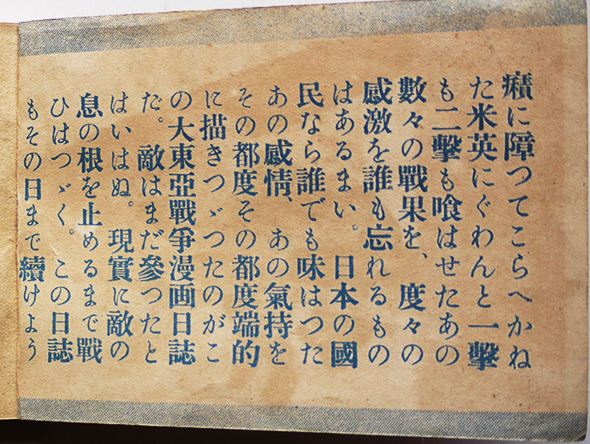 癪に障つてこらへかね
た米英にぐわんと一擊
も二擊も喰はせたあの
數々の戰果を、度々の
感激を誰も忘れるもの
はあるまい。日本の國
民なら誰でも味はつた
あの感情、あの氣持を
その都度その都度端的
に描きつゞつたのがこ
の大東亞戰爭漫画日誌
だ。敵はまだ參つたと
はいはぬ。現實に敵の
息の根を止めるまで戰
ひはつゞく。この日誌
もその日まで續けよう